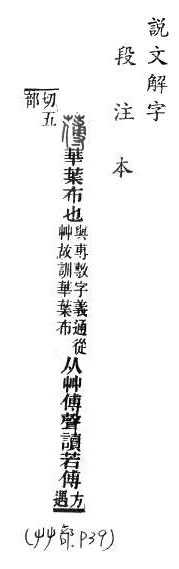 說文解字
段注本
䔰華葉布也與尃敷字義通從艸故訓華葉布从艸傅聲讀若傅方遇
切五部
(艸部 P39)